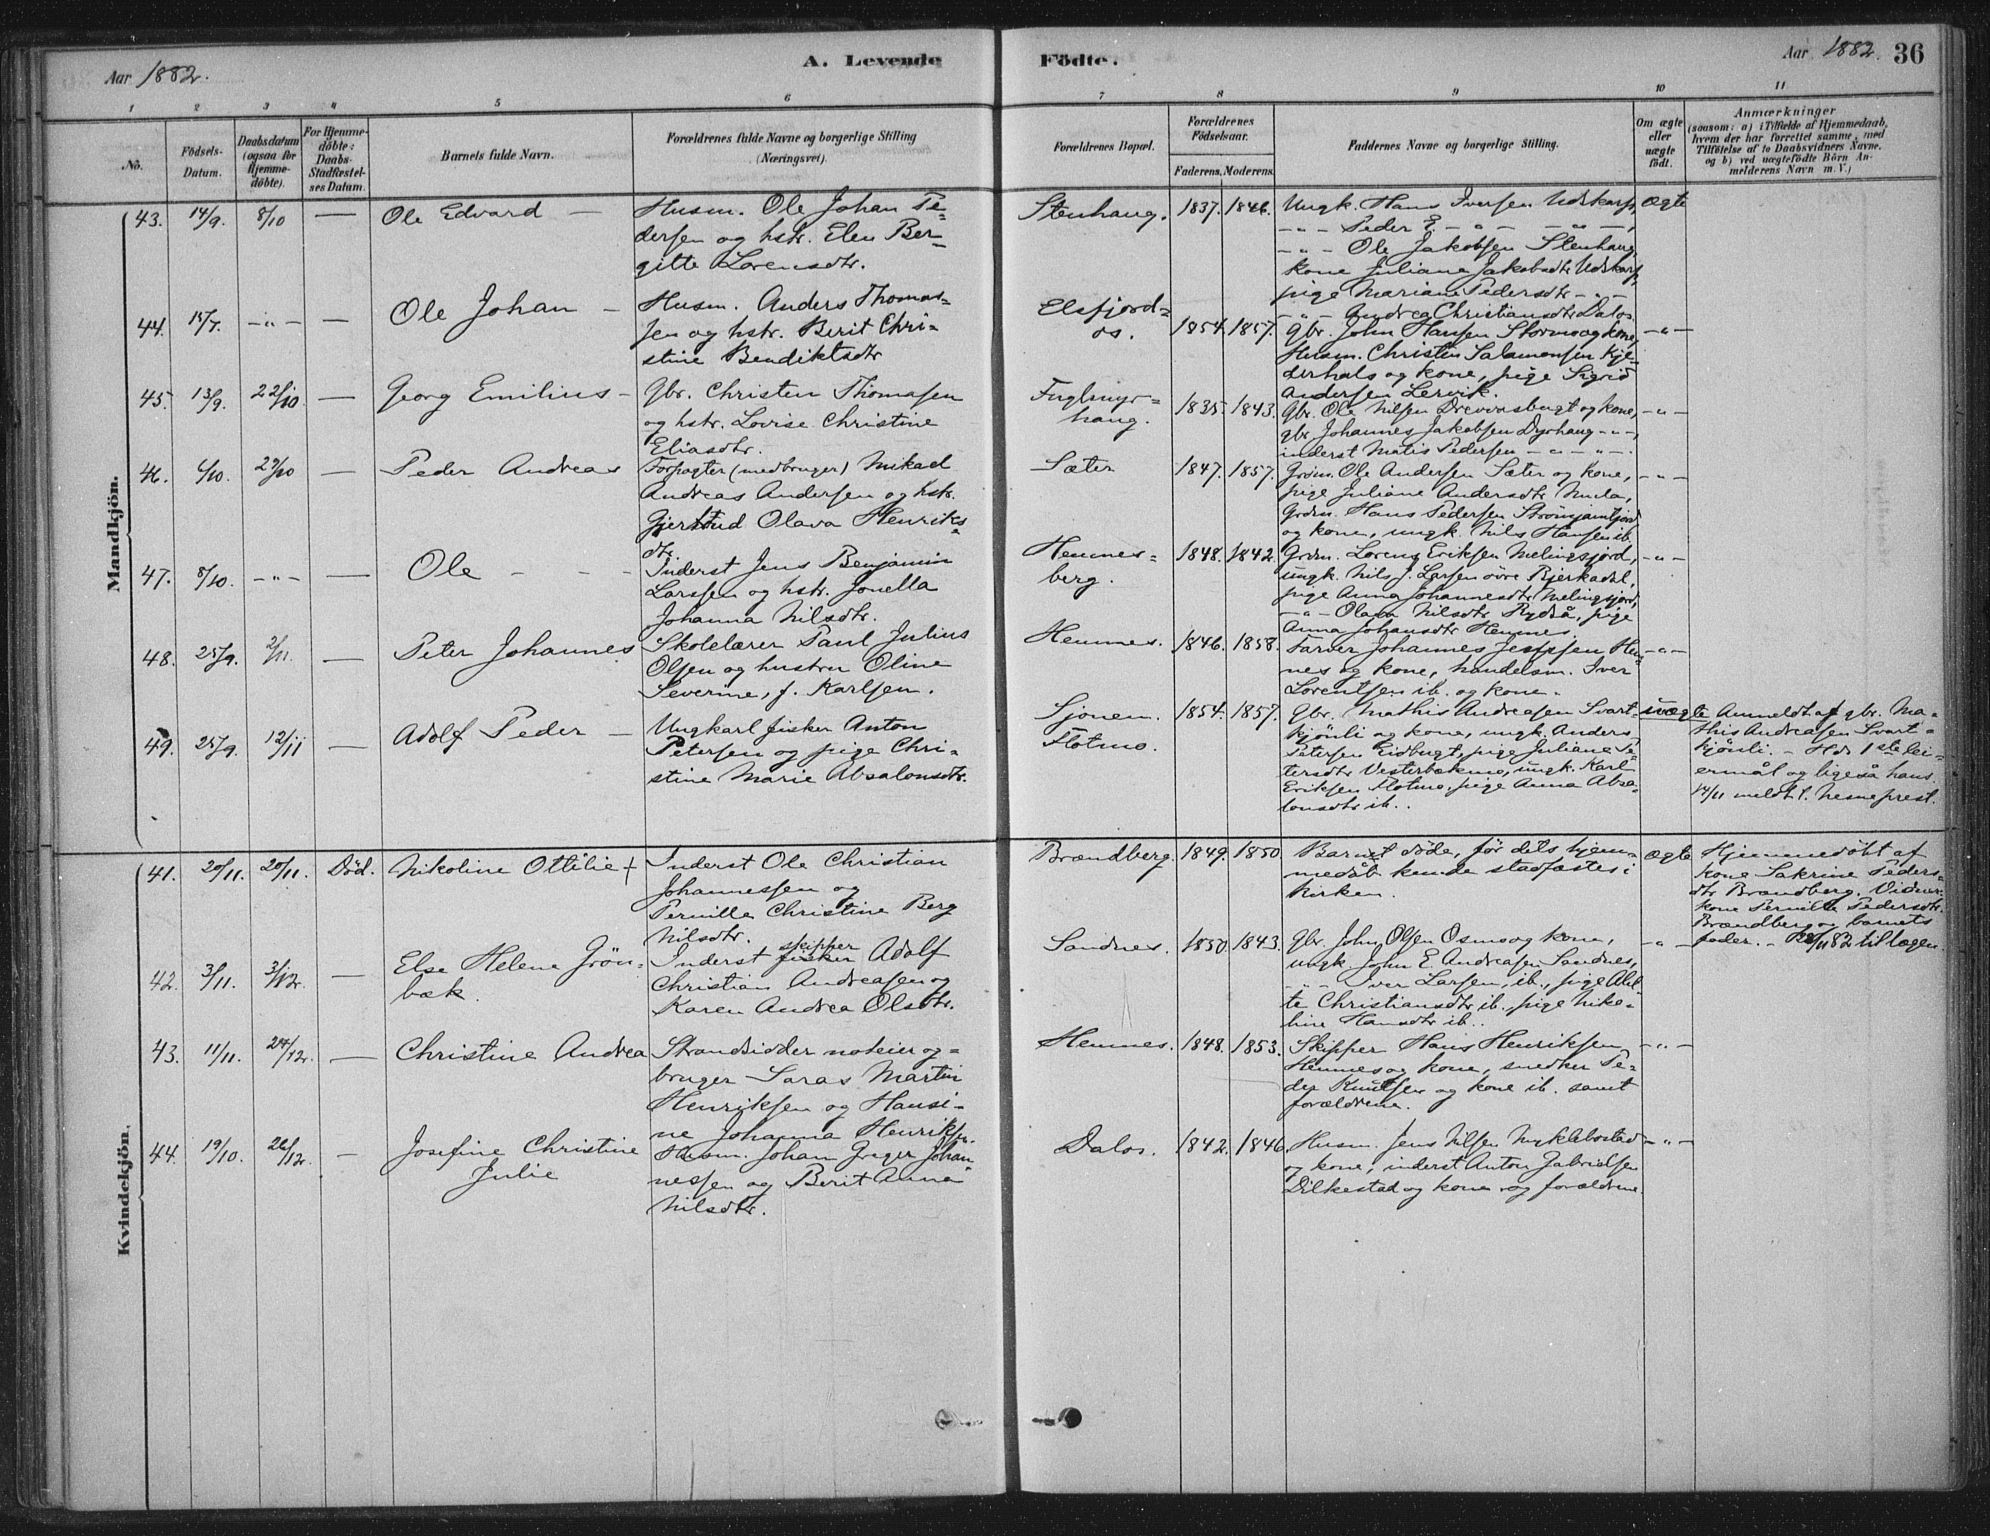 Aar 1882.
A. Levende Födte.
Aar 1882. 36
1 2 3 4 5 6 7 8 9 10 11
No.
Födsels-
Datum.
Daabsdatum
(ogsaa for
Hjemme-
döbte).
For Hjemme-
döbte:
Daabs-
Stadfæstel-
ses Datum.
Barnets fulde Navn.
Forældrenes fulde Navne og borgerlige Stilling
(Næringsvei).
Forældrenes Bopæl.
Forældrenes
Födselsaar.
Faderens. Moderens.
Faddernes Navne og borgerlige Stilling.
Om ægte
eller
uægte
födt.
Anmærkninger
(saasom: a) i Tilfælde af Hjemmedaab,
hvem der har forrettet samme, med
Tilföielse af to Daabsvidners Navne,
og b) ved uægtefödte Börn An-
melderens Navn m. V.)
Mandkjön.
43. 14/9. 8/10 — Ole Edvard —
Husm. Ole Johan Pe-
dersen og hstr. Elen Ber-
gitte Lorensdtr.
Stenhaug. 1837. 1846.
Ungk. Hans Iversen Udskarp, ægte
—"— Peder E. —"— —"—,
—"— Ole Jakobsen Stenhaug,
kone Juliane Jakobsdtr Udskarp,
pige Mariane Pedersdtr —"—
—"— Andrea Christiansdtr Dalos.
44. 15/7. —"— — Ole Johan —
Husm. Anders Thomas-
sen og hstr. Berit Chri-
stine Bendiktsdtr
Elsfjord-
os. 1854. 1857.
Gbr. John Hansen Stormo og kone, —"—
Husm. Christen Salamonsen Kje-
derhals og kone, pige Sigrid
Andersen Lervik.
45. 13/9. 22/10 — Georg Emilius —
Gbr. Christen Thomasen
og hstr. Lovise Christine
Eliasdtr.
Fuglmyr-
haug. 1835. 1843.
Gbr. Ole Nilsen Drevvasbugt og kone, —"—
gbr Johannes Jakobsen Dyrhaug —"—,
inderst Matis Pedersen —"— —"—.
46. 6/10. 29/10 — Peder Andreas
Forpagter (medbruger) Mikael
Andreas Andersen og hstr.
Gjertrud Olava Henriks-
dtr.
Sæter 1847. 1857.
Grdm. Ole Andersen Sæter og kone, —"—
pige Juliane Andersdtr Mula,
Grdm. Hans Pedersen
og kone, ungk. Nils Hansen ib.
47. 8/10. —"— — Ole — — —
Inderst Jens Benjamin
Larssen og hstr. Jonella
Johanna Nilsdtr.
Hemnes-
berg. 1848. 1842
Grdm. Lorens Eriksen Melingsjord, —"—
ungk. Nils J. Larsen övre Bjerkadal,
pige Anna Johannesdtr Melingsjord,
—"— Olava Nilsdtr Rydså, pige
Anna Johansdtr Hemnes.
48. 25/9. 2/11. — Peter Johannes
Skolelærer Paul Julius
Olsen og hustru Oline
Severine, f. Karlsen.
Hemnes. 1846. 1858.
Farver Johannes Jessen Hem- —"—
nes og kone, handelsm. Iver
Lorentsen ib. og kone.
49. 25/9. 12/11 — Adolf Peder —
Ungkarl fisker Anton
Petersen og pige Chri-
stine Marie Absalonsdtr.
Sjonem.
Flotmo. 1854. 1857.
Gbr. Mathis Andreasen Svart-
kjönli og kone, ungk. Anders
Petersen Eidbugt, pige Juliane Pe-
tersdtr Vesterbækmo, ungk. Karl
Eriksen Flotmo, pige Anna Absa-
lonsdtr ib..
uægte Anmeldt af gbr. Ma-
this Andreasen Svart-
kjönli. — Hds 1ste lei-
ermål og ligeså hans.
14/11 meldt t. Nesne prest.
Kvindekjön.
41. 20/11. 20/11. Död. Nikoline Ottilie +
Inderst Ole Christian
Johannessen og
Pernille Christine Berg
Nilsdtr.
Brændberg. 1849. 1850
Barnet döde, för dets hjem-
medåb kunde stadfæstes i
Kirken.
ægte Hjemmedöbt af
kone Sakrine Peders-
dtr Brandberg. Vidner:
kone Pernille Pedersdtr.
Brændberg og barnets
fader. — 28/11 82 tiltagen
42. 3/11. 3/12. — Else Helene Grön-
bæk.
Inderst, skipper fisker Adolf
Christian Andreasen og
Karen Andrea Olsdtr.
Sandnes. 1850. 1843.
Gbr. John Olsen Osmo og kone, —"—
ungk John E. Andreasen Sandnes,
—"— Iver Larsen, ib., pige Alet-
te Christiansdtr ib. pige Niko-
line Hansdtr ib..
43. 11/11. 24/12. — Christine Andrea
Strandsidder noteier og -
bruger Saras Martin
Henriksen og Hansi-
ne Johanna Henriksr.
Hemnes. 1848. 1853.
Skipper Hans Henriksen —"—
Hemnes og kone, snedker Pe-
der Knutsen og kone ib. samt
forældrene.
44. 19/10. 26/12. — Josefine Christine
Julie
Husm. Johan Greger Johan-
nessen og Berit Anna
Nilsdtr.
Dalos. 1842. 1846
Husm. Jens Nilsen Myklebostad —"—
og kone, inderst Anton Gabrielsen
Dilkestad og kone og forældrene.